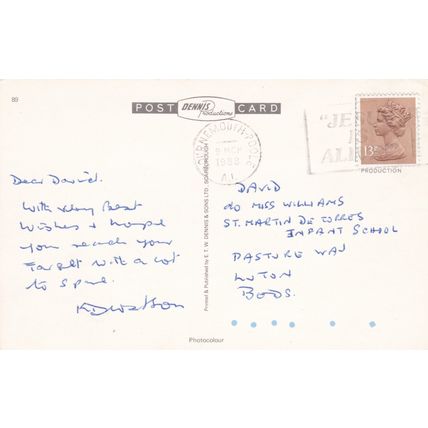 89
POST DENNIS Productions CARD
BOURNEMOUTH-POOLE
1988
A.L
"JE
AL
13P
PRODUCTION
Dear David.
With very best
wishes & hope
you reach your
target with a lot
to spare.
KDWatson
DAVID
c/o MISS WILLIAMS
ST. MARTIN DE PORRES
INFANT SCHOOL
PASTURE WAY
LUTON
BEDS.
Printed & Published by E. T. W. DENNIS & SONS LTD., SCARBOROUGH
Photocolour